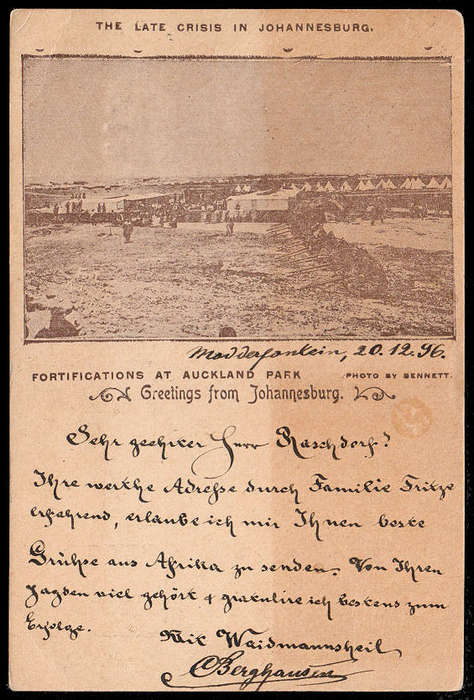 THE LATE CRISIS IN JOHANNESBURG.
Modderfontein, 20.12.96.
FORTIFICATIONS AT AUCKLAND PARK
PHOTO BY BENNETT.
Greetings from Johannesburg.
Sehr geehrter Herr Raschdorf!
Ihre werthe Adresse durch Familie Fritze
erfahrend, erlaube ich mir Ihnen beste
Grühse aus Afrika zu senden. Von Ihren
Jagden viel gehört & gratulire ich bestens zum
Erfolge.
Mit Waidmannsheil
CBerghausen